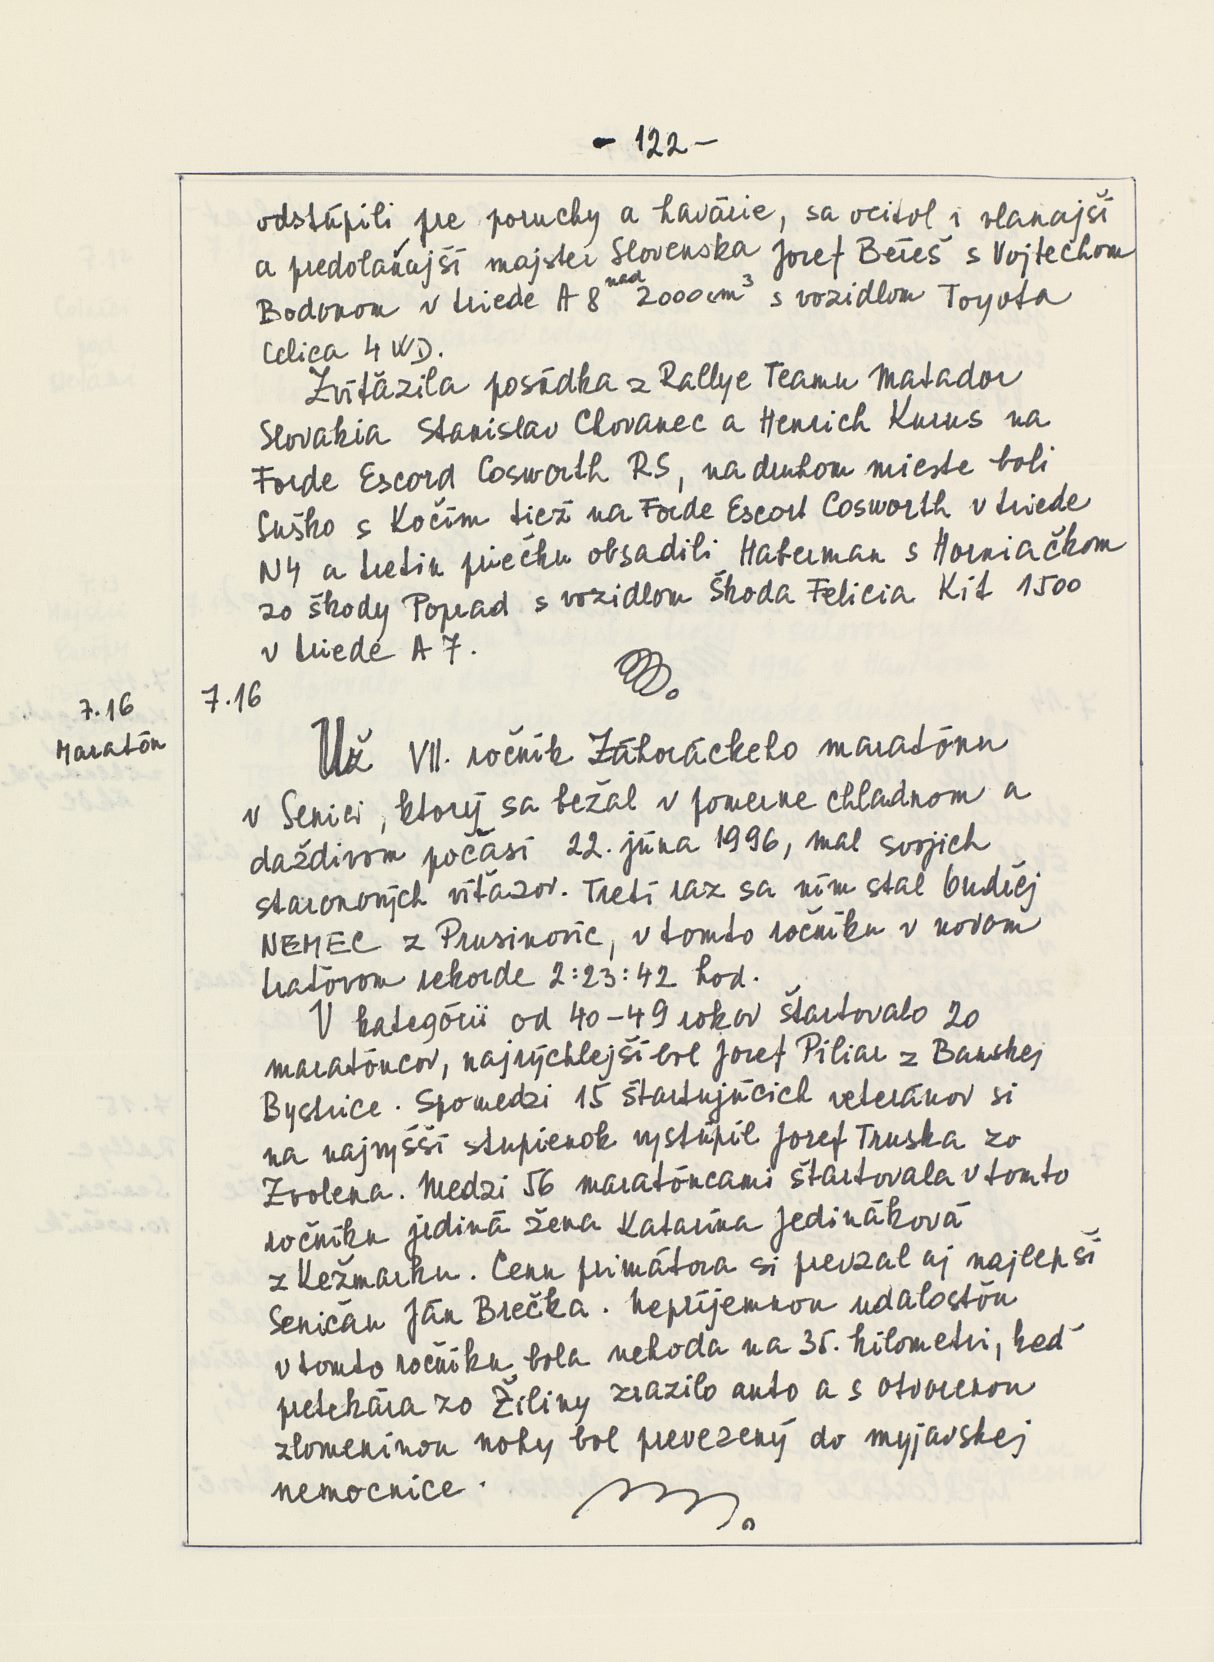 - 122 -
odstúpili pre poruchy a havárie, sa ocitol i vlanajší
a predolaňajší majster Slovenska Jozef Béreš s Vojtechom
Bodonom v triede A 8 nad 2000 cm³ s vozidlom Toyota
Celica 4 WD.
Zvíťazila posádka z Rallye Teamu Matador
Slovakia Stanislav Chovanec a Henrich Kurus na
Forde Escord Cosworth RS, na druhom mieste boli
Suško s Kočím tiež na Forde Escort Cosworth v triede
N4 a tretiu priečku obsadili Haberman s Horniačkom
zo škody Poprad s vozidlom Škoda Felicia Kit 1500
v triede A 7.
7.16
Maratón
7.16
Už VII. ročník Záhoráckeho maratónu
v Senici, ktorý sa bežal v pomerne chladnom a
daždivom počasí 22. júna 1996, mal svojich
staronových víťazov. Tretí raz sa ním stal
NEMEC z Prusinovíc, v tomto ročníku v novom
traťovom rekorde 2:23:42 hod.
V kategórii od 40-49 rokov štartovalo 20
maratóncov, najrýchlejší bol Jozef Piliar z Banskej
Bystrice. Spomedzi 15 štartujúcich veteránov si
na najvyšší stupienok vystúpil Jozef Truska zo
Zvolena. Medzi 56 maratóncami štartovala v tomto
ročníku jediná žena Katarína Jedináková
z Kežmarku. Cenu primátora si prevzal aj najlepší
Seničan Ján Brečka. Nepríjemnou udalosťou
v tomto ročníku bola nehoda na 35. kilometri, keď
pretekára zo Žiliny zrazilo auto a s otvorenou
zlomeninou nohy bol prevezený do myjavskej
nemocnice.